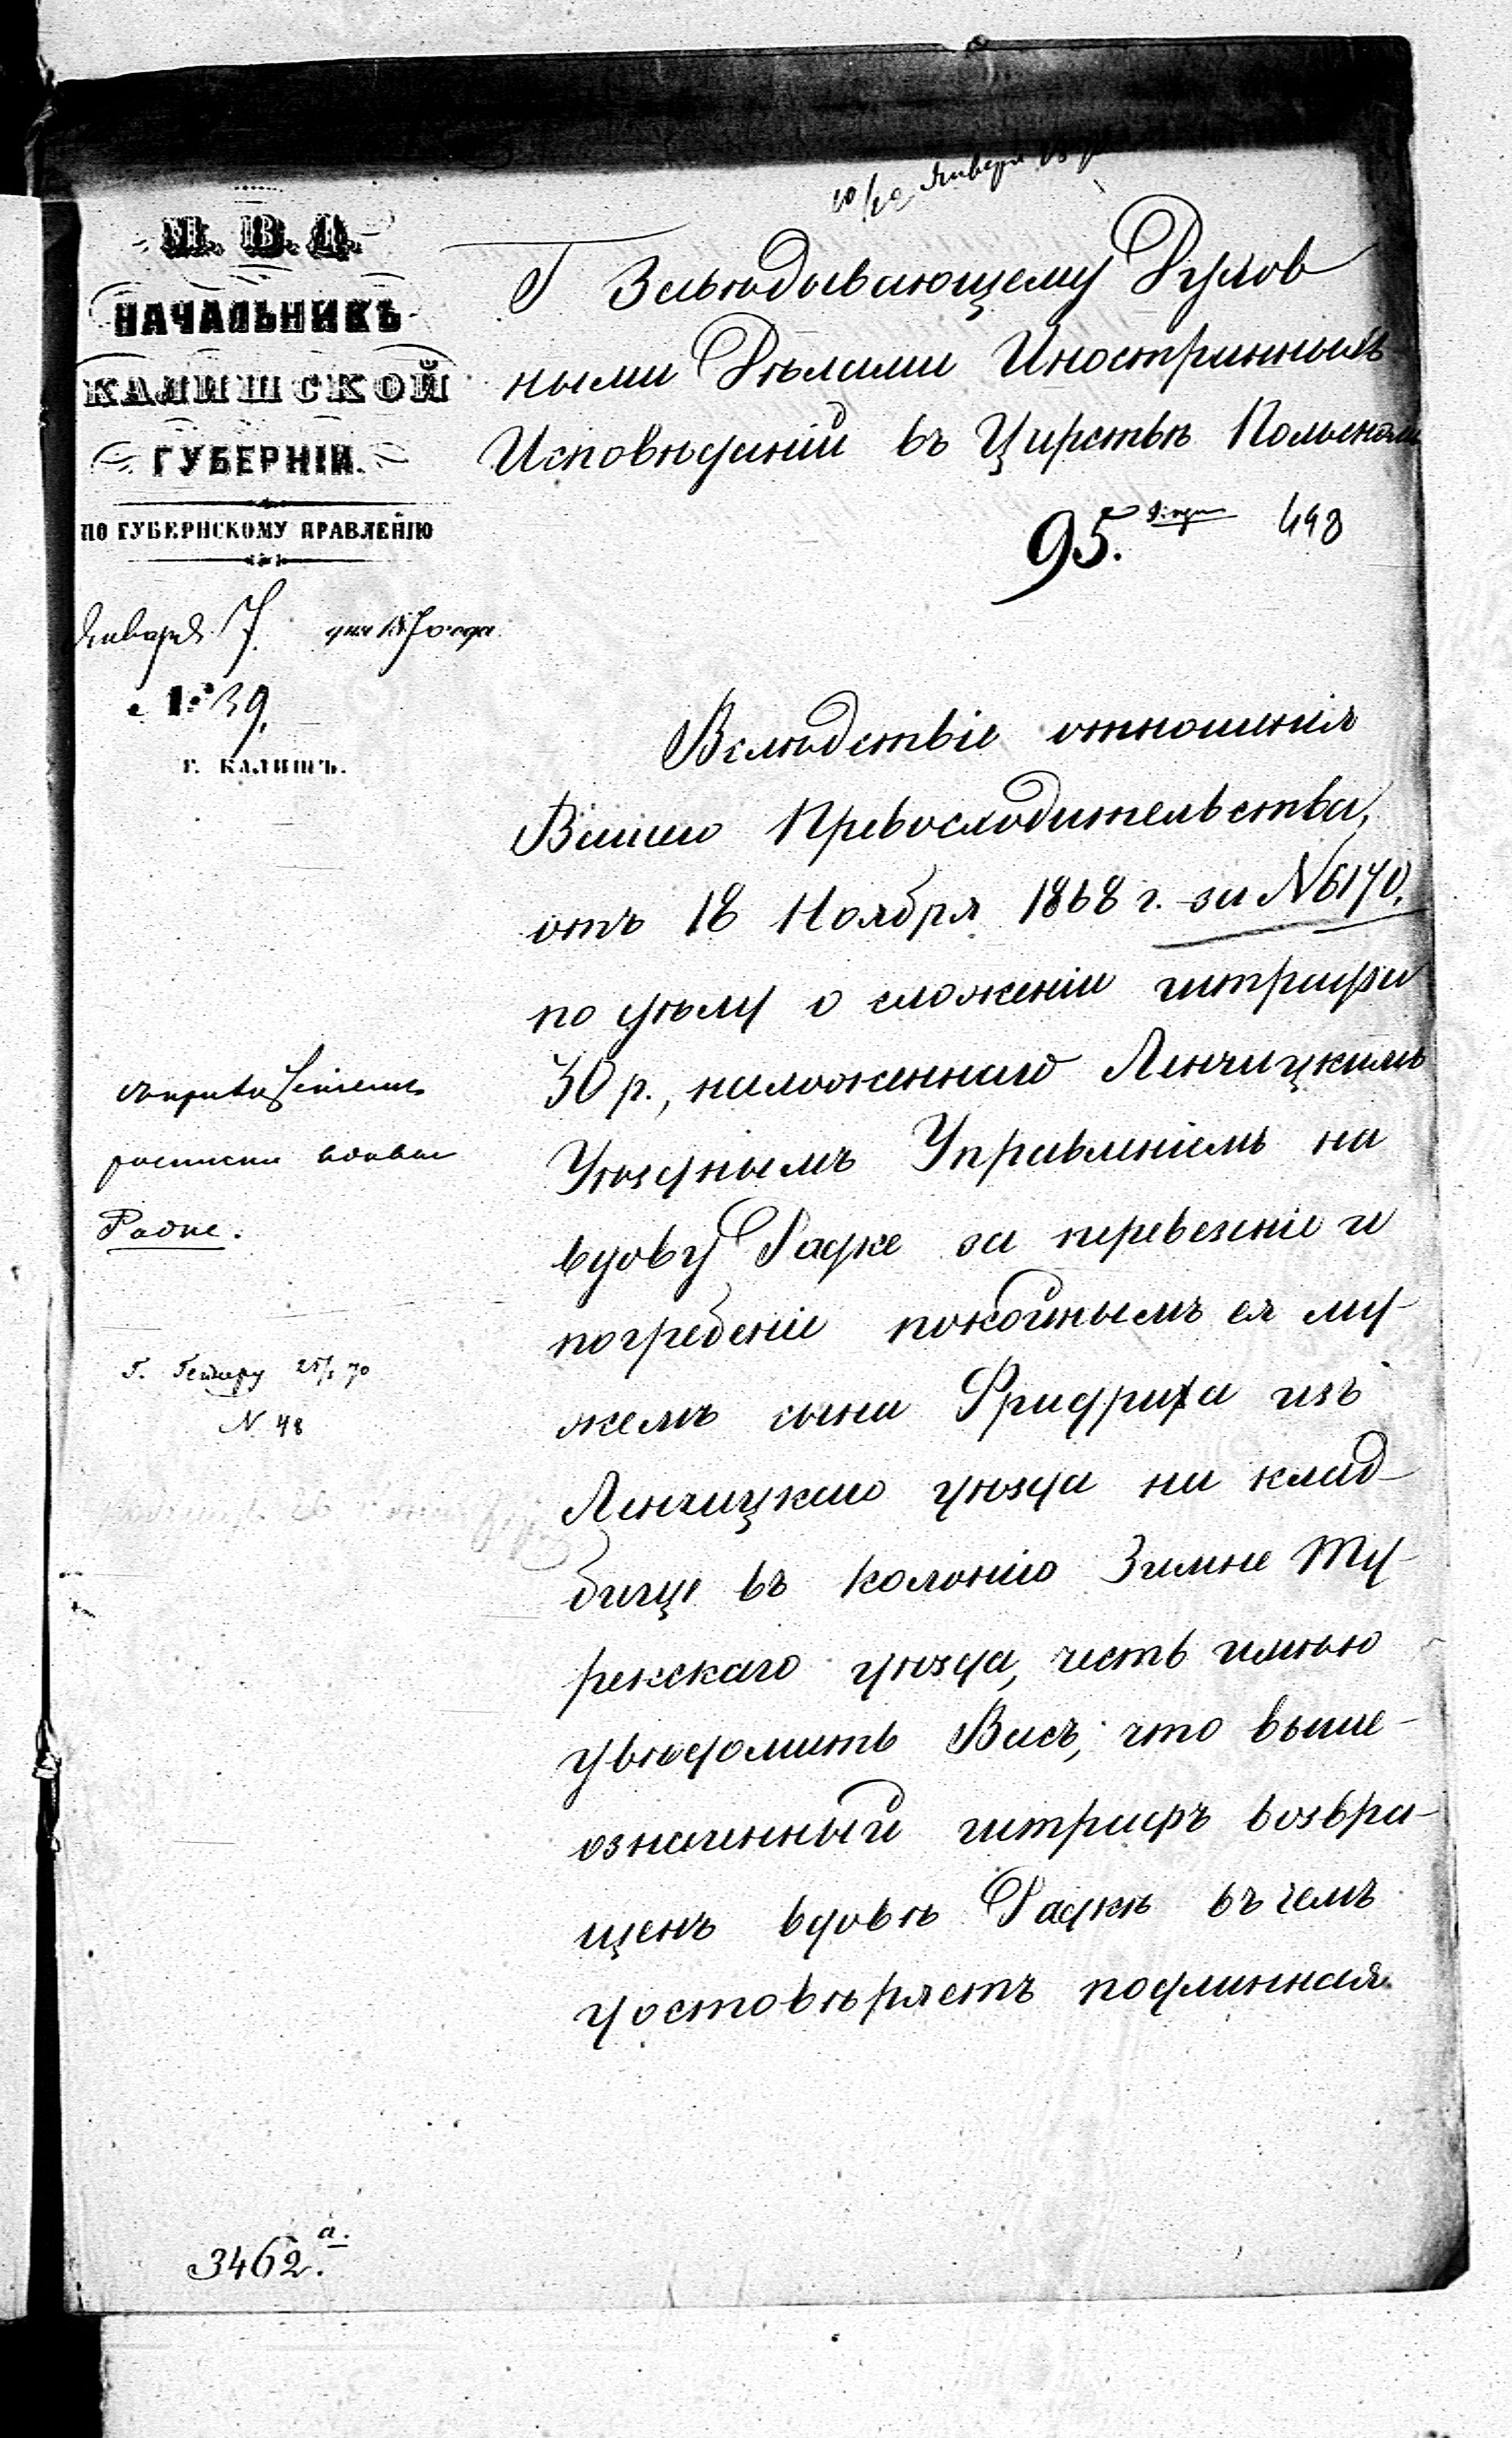 10/22 Января
М. В. Д.
НАЧАЛЬНИКЪ
КАЛИШСКОЙ
ГУБЕРНІИ.
ПО ГУБЕРНСКОМУ ПРАВЛЕНІЮ
Января 7 дня 1870 года
№ 39.
Г. КАЛИШЪ.
Г Завѣдывающему Духов
ными Дѣлами Иностранныхъ
Исповѣданій въ Царствѣ Польскомъ
95. 448
Вслѣдствіе отношенія
Вашего Превосходительства,
отъ 18 Ноября 1868 г. за №6170,
по дѣлу о сложеніи штрафа
30 р., наложеннаго Ленчицкимъ
Уѣзднымъ Управленіемъ на
вдову Радке за перевезеніе и
погребеніе покойнымъ ея му-
жемъ сына Фридриха изъ
Ленчицкаго уѣзда на клад-
бище въ колонію Зимне Ту-
рекскаго уѣзда, честь имѣю
увѣдомить Васъ, что выше-
означенный штрафъ возвра-
щенъ вдовѣ Радкѣ въ чемъ
удостовѣряетъ подлинная
росписки вдовы
Радке.
Г. 25/1 70
N 48
3462.a.